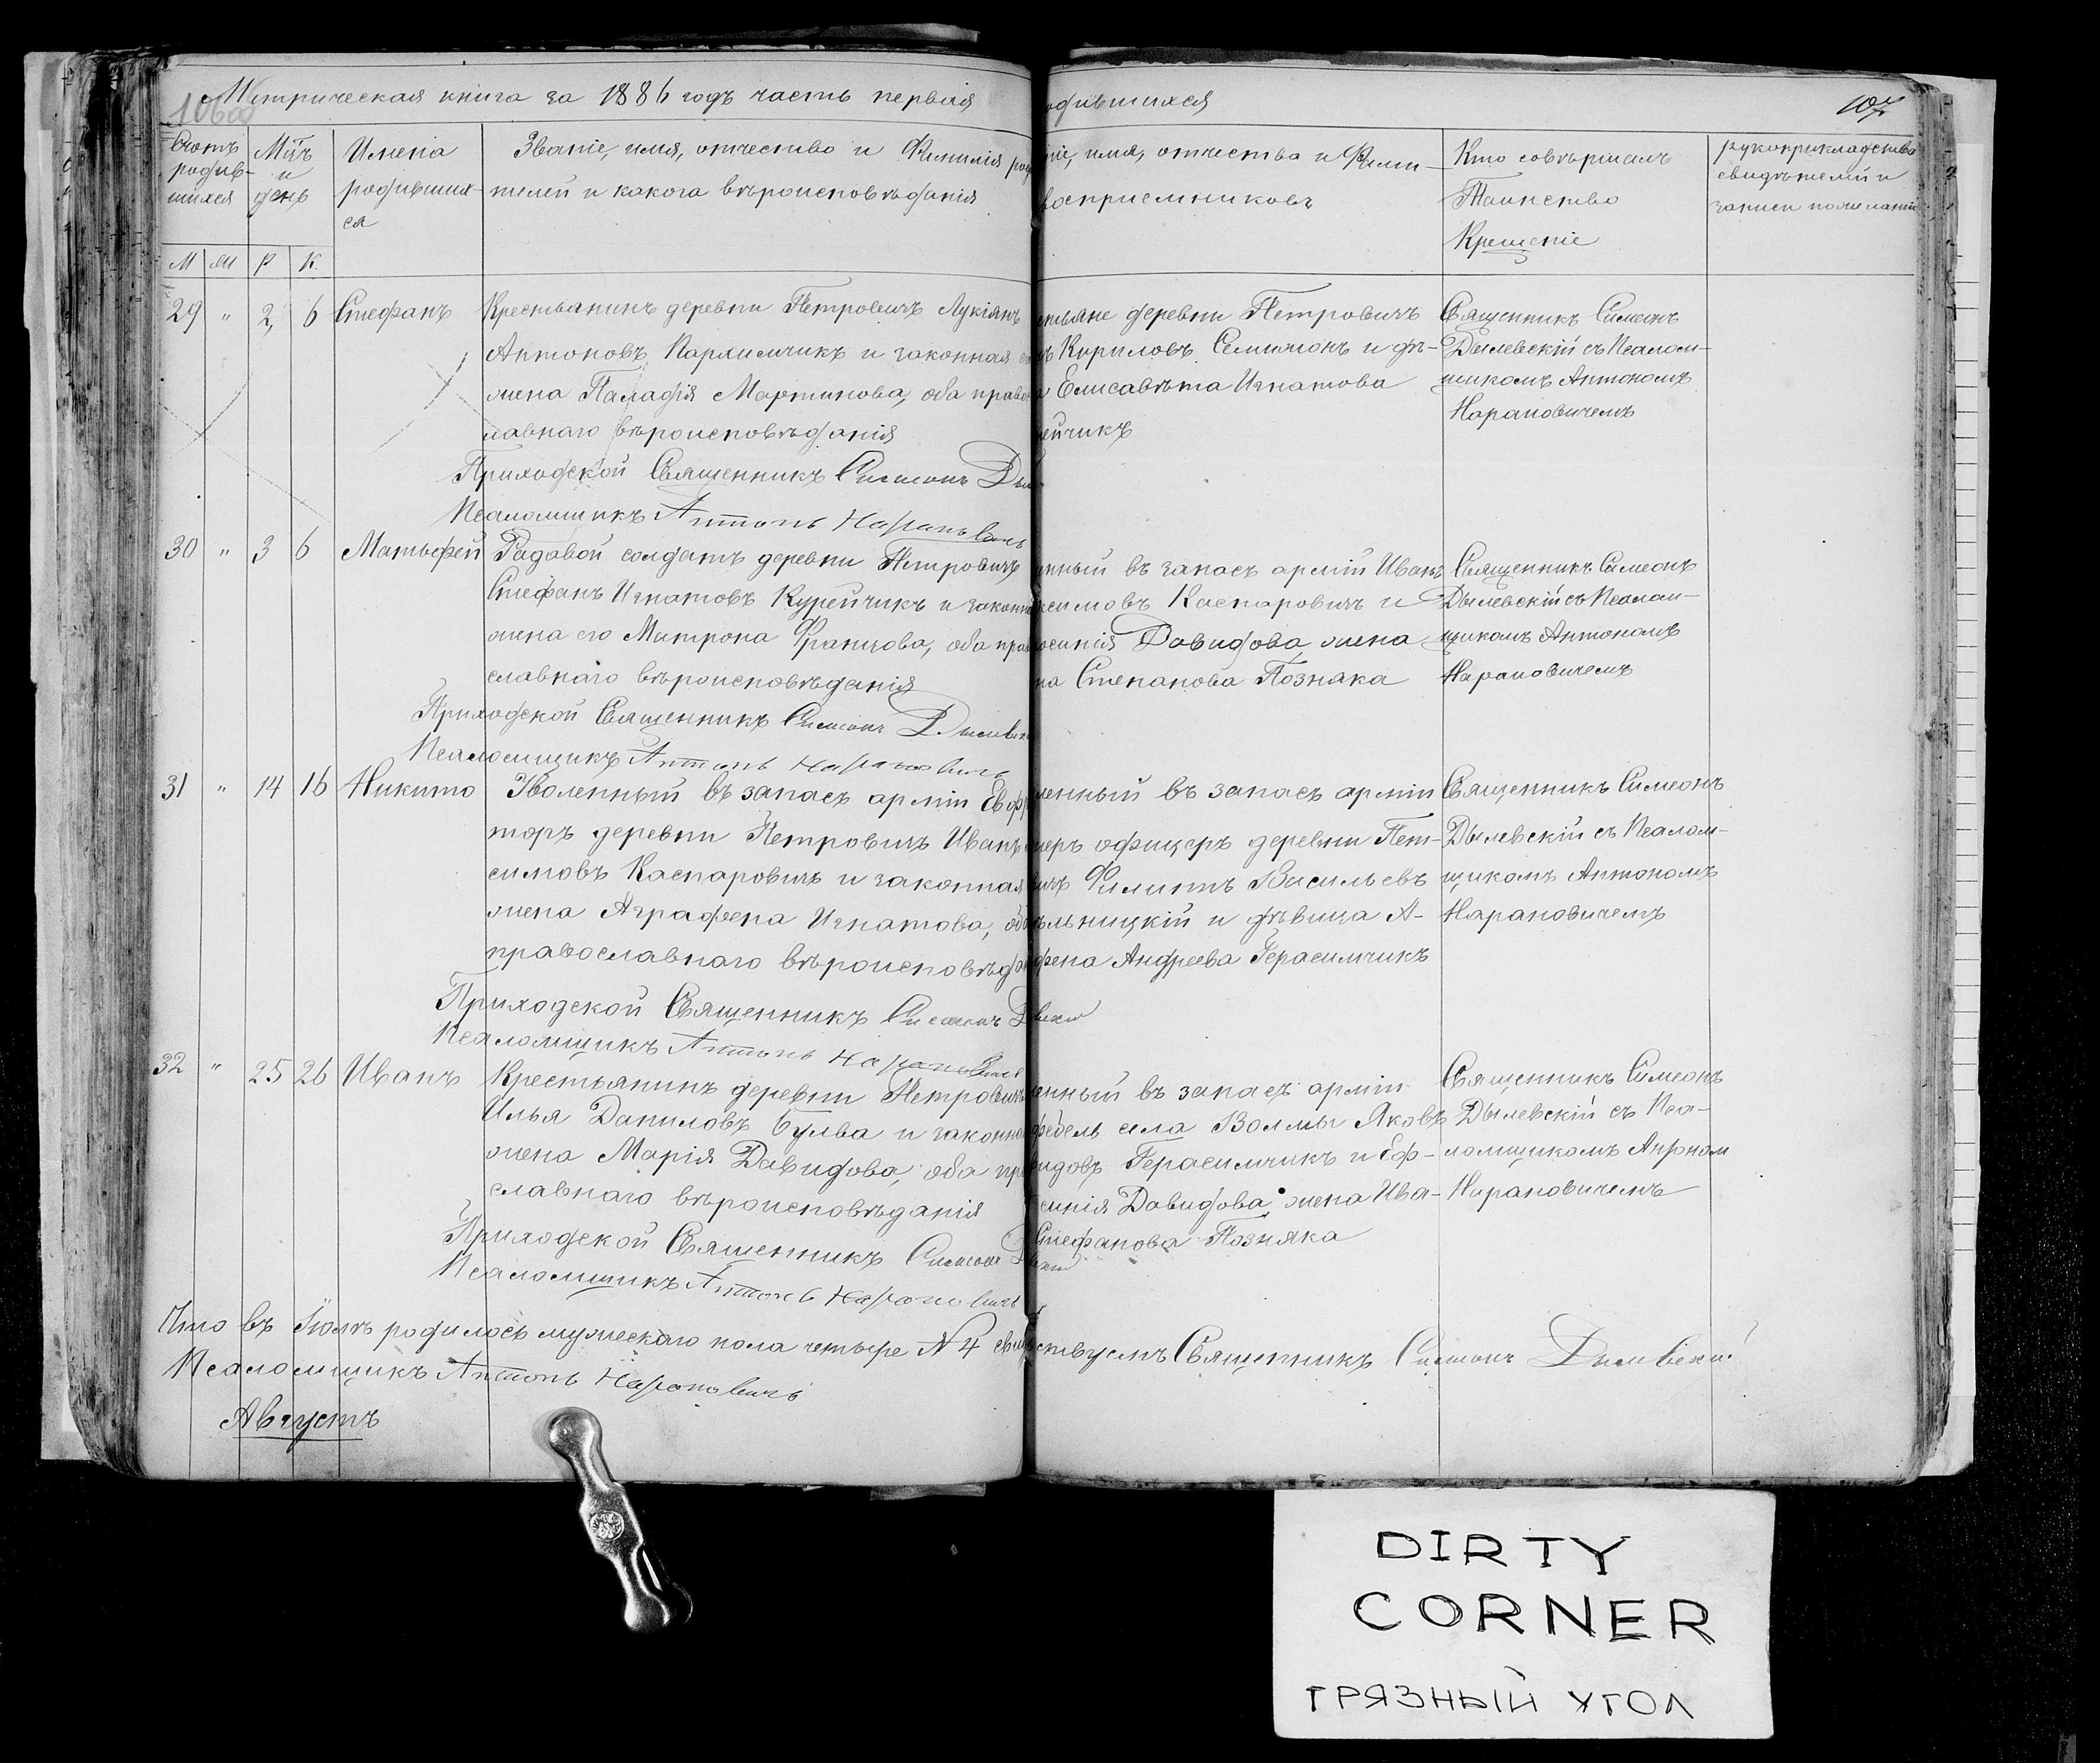 Метрическая книга за 1886 годъ часть первая
одившихся
107
Счетъ родив-шихся
Мц̃ъ и день
Имена родивших-ся
Званіе, имя, отчество и Фимилія род
телей и какога вѣроисповѣданія
ніе, имя, отчества и Фими-
воспріемниковъ
Кто совѣршалъ
Таинство
Крещеніе
рукоприкладство
свидѣтелей и
записи
М Ж Р К
29 " 2 6 Стефанъ
Крестьянинъ деревни Петровичъ Лукіянъ
Антоновъ Пархимчикъ и законная
жена Палафія Мартинова, оба право
лавнаго вѣроисповѣданія
Приходской Священникъ Симеонъ Дыл
Псаломщикъ Антонъ Нарановичъ
стьяне деревни Петровичъ
ъ Кириловъ Семимонъ и дѣ-
а Елисавѣта Игнатова
ейчикъ
Священникъ Симеонъ
Дылевскій съ Псалом-
щикомъ Антономъ
Нарановичемъ
30 " 3 6 Матьфей
Радавой солдатъ деревни Петровичъ
Стефанъ Игнатовъ Курейчикъ и законн
жена его Матрона Францова, оба прав
славнаго вѣроисповѣданія
Приходской Священникъ Симеонъ Дылевск
Псаломщикъ Антонъ Нарановичъ
нный въ запасъ армій Иванъ
ксимовъ Каспаровичъ и
осинія Давидова жена
на Степанова Позняка
Священникъ Симеонъ
Дылевскій съ Псалом-
щикомъ Антономъ
Нарановичемъ
31 " 14 16 Никито
Уволенный въ запасъ арміи Ефр
торъ деревни Петровичъ Иванъ
симовъ Каспаровичъ и законная
жена Аграфена Игнатова, оба
православнаго вѣроисповѣдан
Приходской Священникъ Симеонъ Д
Псаломщикъ Антонъ Нарановичъ
ленный въ запасъ арміи
теръ офицеръ деревни Пет-
ичъ Филипъ Васильевъ
ѣльницкій и дѣвица А-
фена Андреева Герасимчикъ
вскій
Священникъ Симеонъ
Дылевскій съ Псалом-
щикомъ Антономъ
Нарановичемъ
32 " 25 26 Иванъ
Крестьянинъ деревни Петровичъ
Илья Даниловъ Булва и законна
жена Марія Давидова, оба пра
славнаго вѣроисповѣданія
Приходской Священникъ Симеонъ Д
Псаломщикъ Антонъ Нарановичъ
енный въ запасъ арміи
дфебель села Волмы Яковъ
видовъ Герасимчикъ и Еф-
синія Давидова жена Ива-
Стефанова Позняка
вскій
Священникъ Симеонъ
Дылевскій съ Пса-
ломщикомъ Антоном
Нарановичемъ
Что въ Іюлѣ родилось мужескаго пола четыре N 4 свидѣтельствуемъ Священникъ Симеонъ Дылевскій
Псаломщикъ Антонъ Нарановичъ
Августъ
DIRTY
CORNER
ГРЯЗНЫЙ УГОЛ